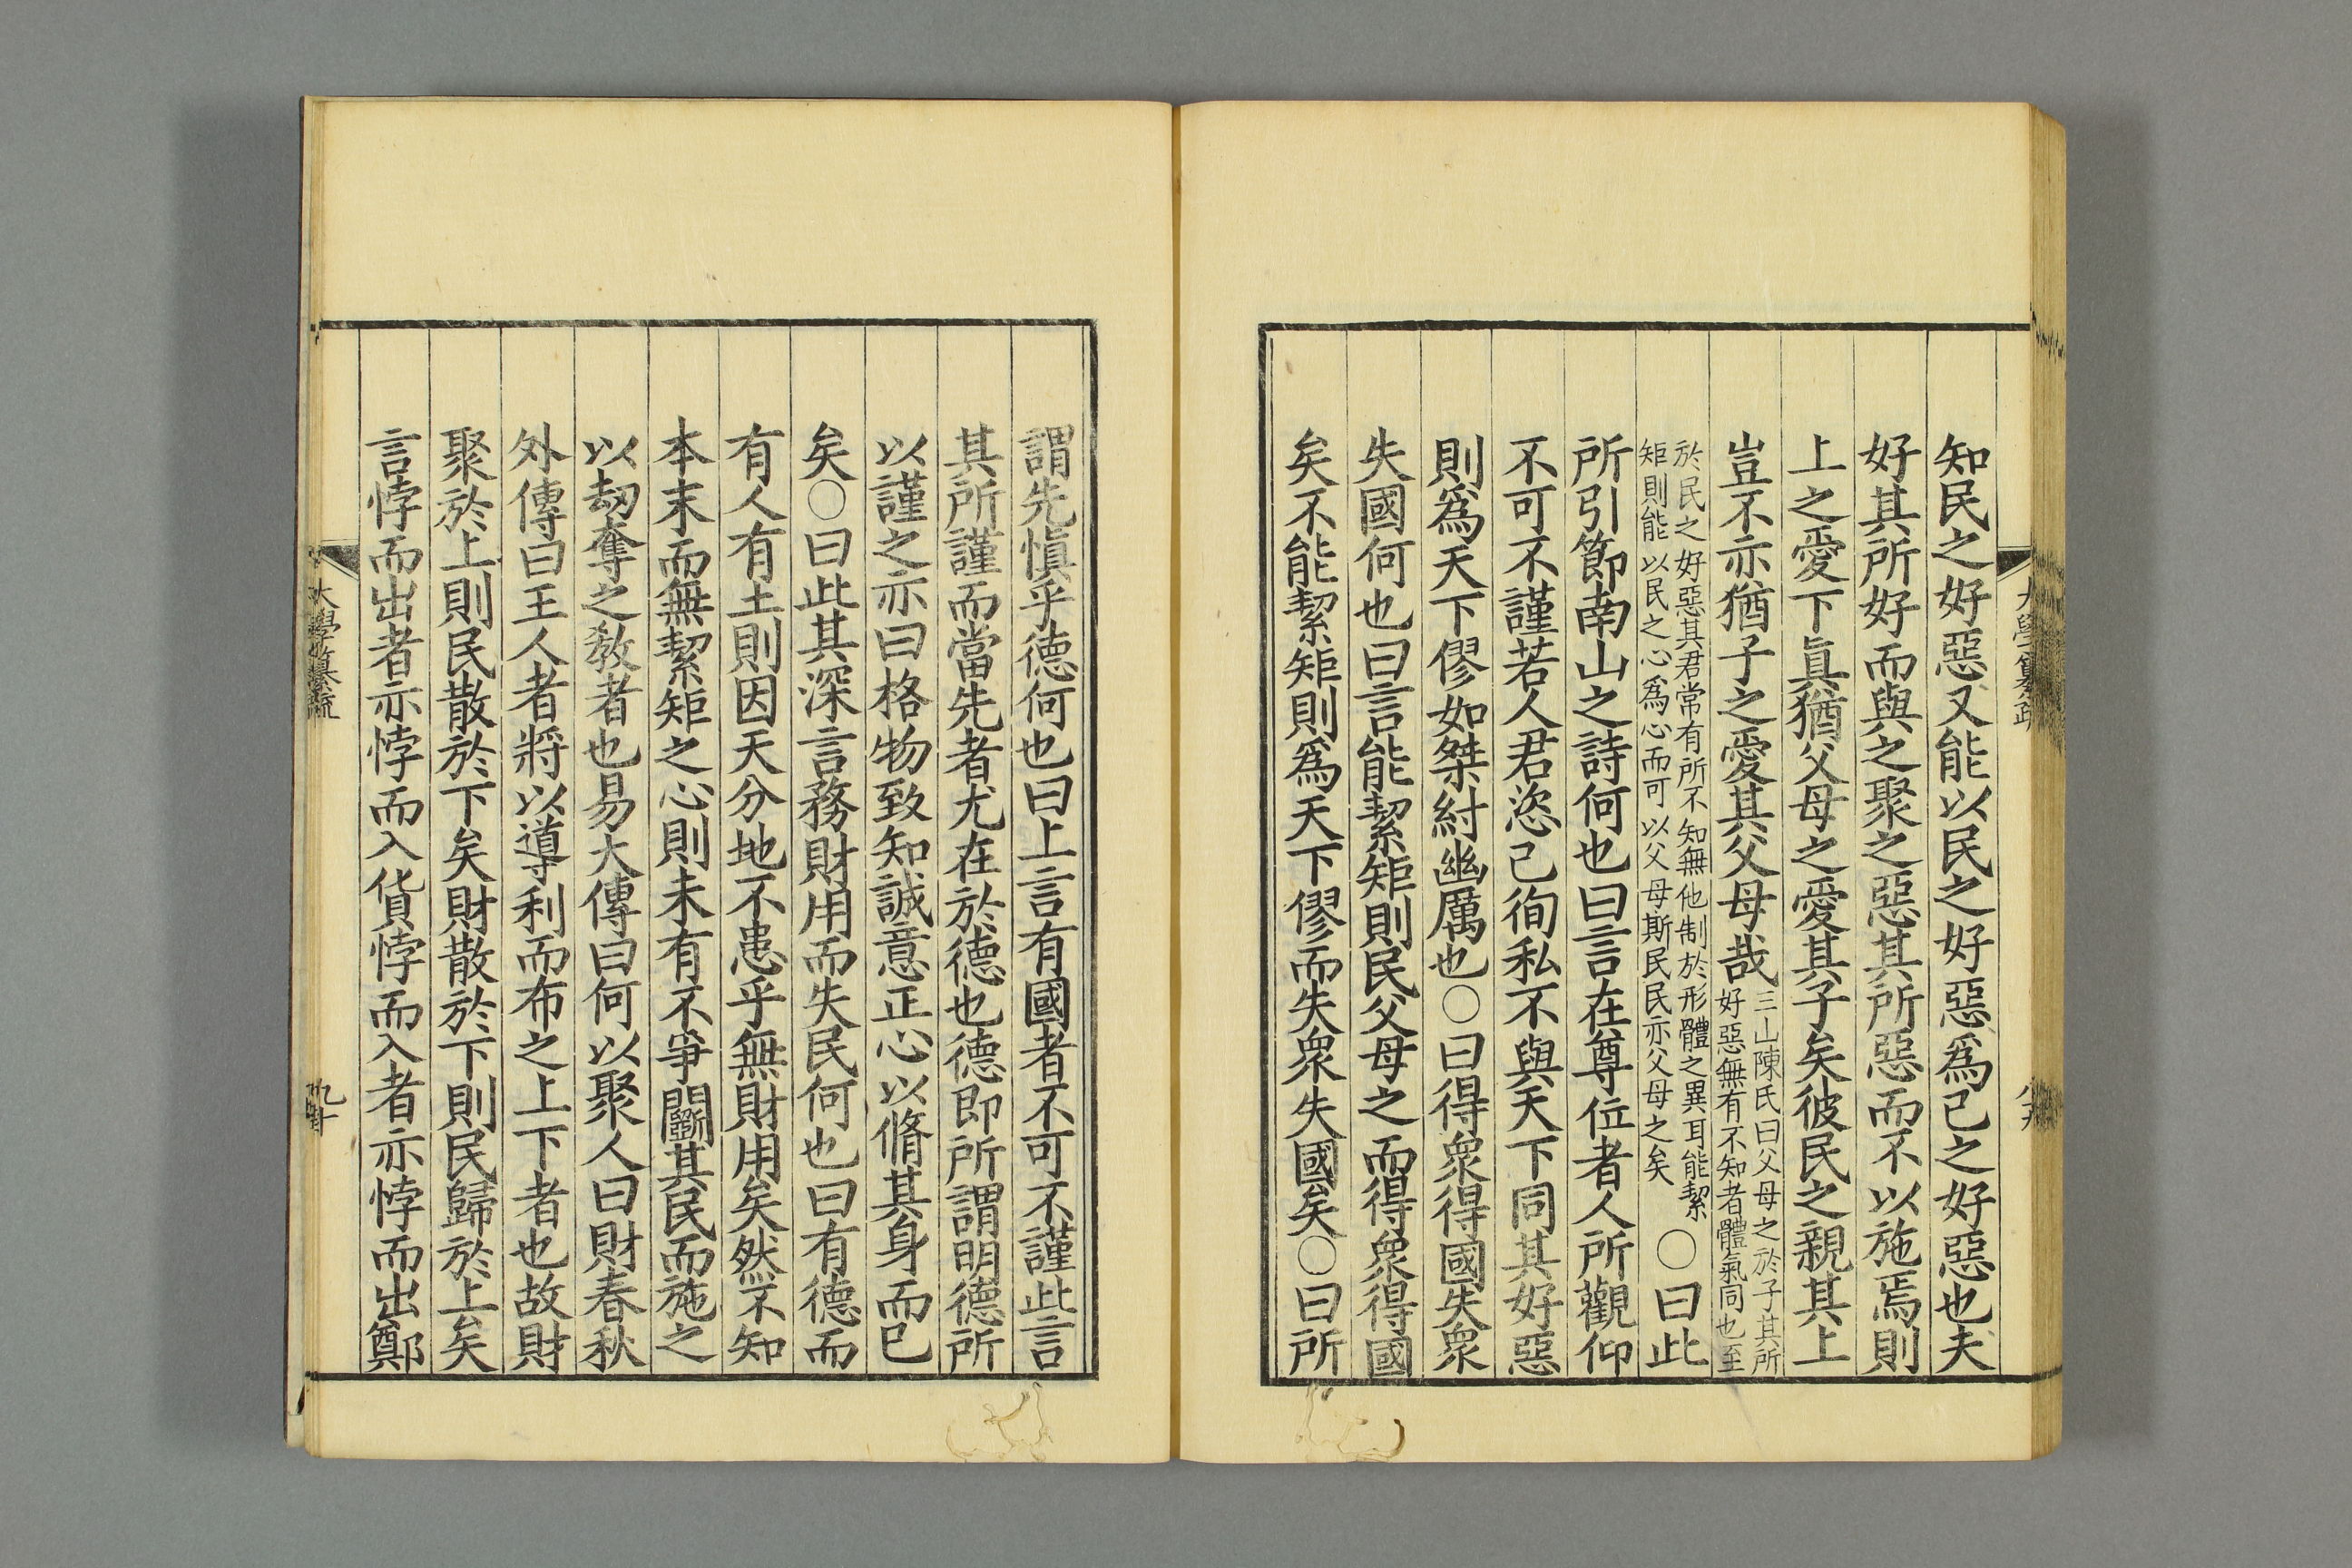 知民之好惡又能以民之好惡爲己之好惡也夫
好其所好而與之聚之惡其所惡而不以施焉則
上之愛下眞猶父母之愛其子矣彼民之親其上
豈不亦猶子之愛其父母哉三山陳氏曰父母之於子其所
好惡無有不知者體氣同也至
於民之好惡其君常有所不知無他制於形體之異耳能絜
矩則能以民之心爲心而可以父母斯民民亦父母之矣
○曰此
所引節南山之詩何也曰言在尊位者人所觀仰
不可不謹若人君恣己徇私不與天下同其好惡
則爲天下僇如桀紂幽厲也○曰得衆得國失衆
失國何也曰言能絜矩則民父母之而得衆得國
矣不能絜矩則爲天下僇而失衆失國矣○曰所
謂先愼乎德何也曰上言有國者不可不謹此言
其所謹而當先者尤在於德也德即所謂明德所
以謹之亦曰格物致知誠意正心以脩其身而已
矣○曰此其深言務財用而失民何也曰有德而
有人有土則因天分地不患乎無財用矣然不知
本末而無絜矩之心則未有不爭鬭其民而施之
以刼奪之敎者也易大傳曰何以聚人曰財春秋
外傳曰王人者將以導利而布之上下者也故財
聚於上則民散於下矣財散於下則民歸於上矣
言悖而出者亦悖而入貨悖而入者亦悖而出鄭
大學纂疏